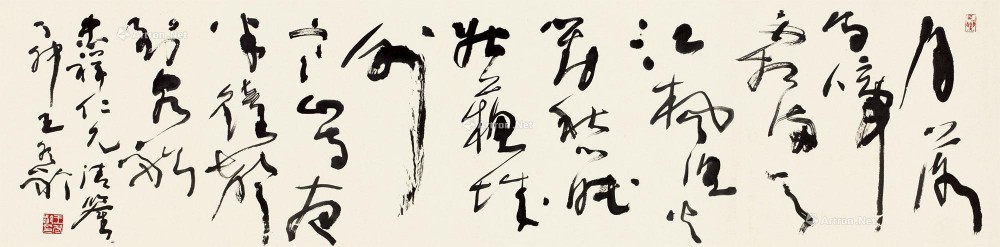 月落
烏啼
霜滿天
江楓漁火
對愁眠
姑蘇城
外
寒山寺夜
半鐘聲
到客船
忠祥仁兄清鑒
丁卯 王冬齡
Artron.Net